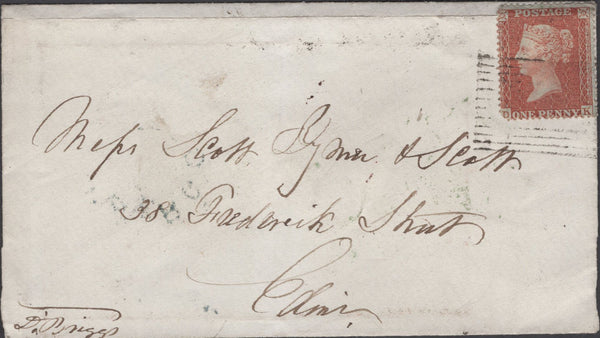 POSTAGE
ONE PENNY
Messrs Scott Rymer & Scott
38 Frederick Street
Edinr
D. Briggs